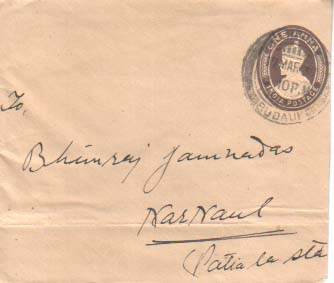 ONE ANNA
INDIA POSTAGE
MAR
10 P.M
To,
Bhimraj Jamnadas
Narnaul
Patiala sta